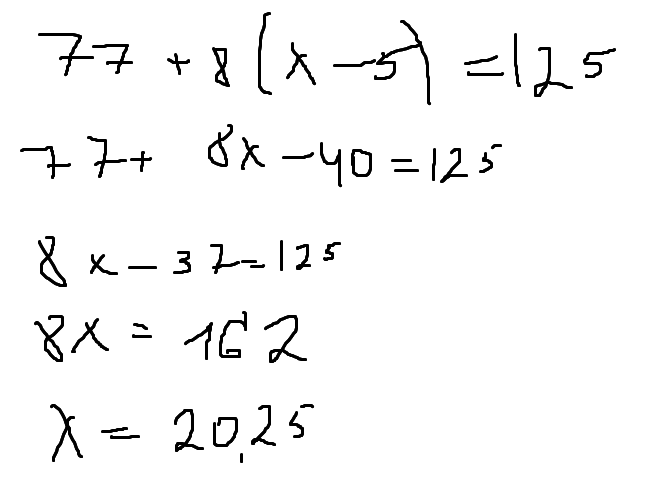 77 + 8(x - 5) = 125
77 + 8x - 40 = 125
8x - 37 = 125
8x = 162
x = 20,25